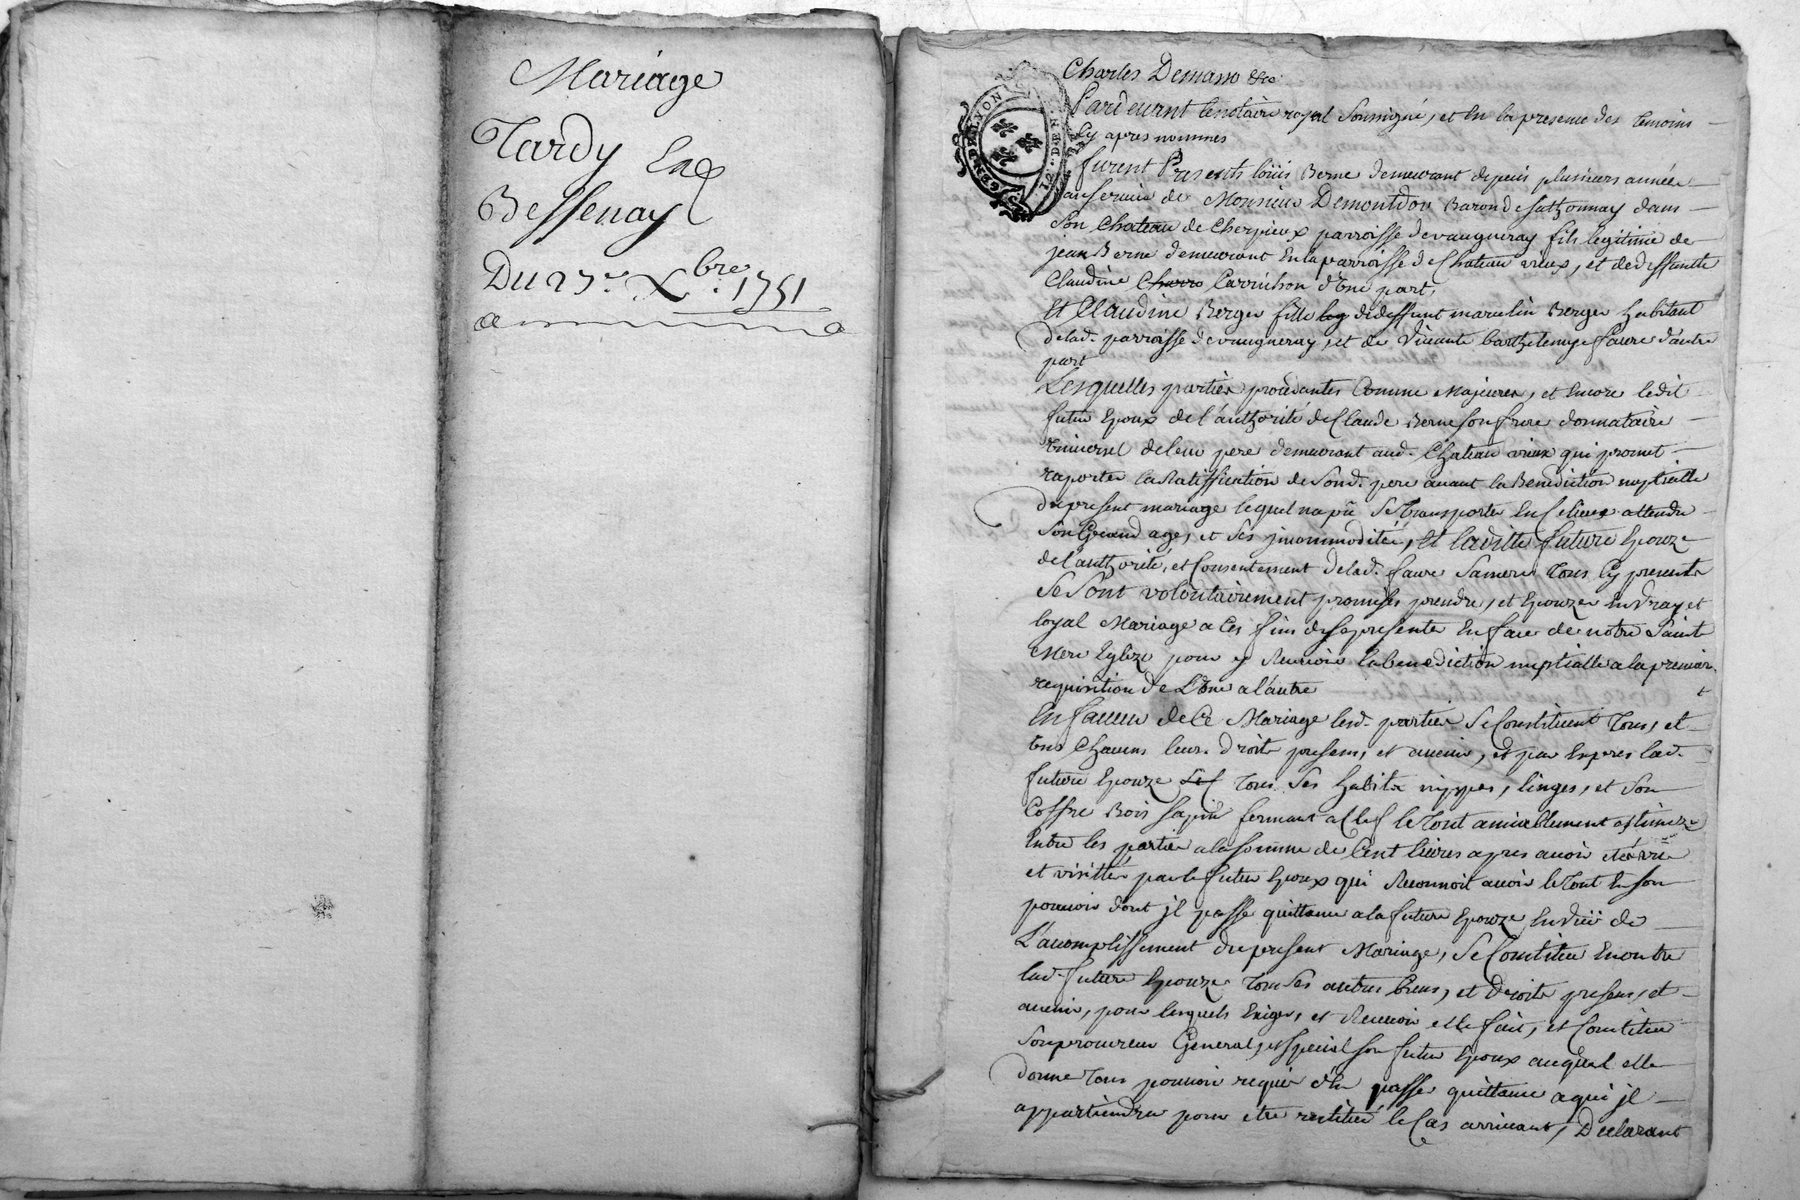 Mariage
Tardy Et
Bessenay
Du 27e Xbre. 1751
GEN. DE LYON
12. D.
Charles Demasso &ca
Pardevant le notaire royal Soussigné, et En la presence des temoins
Cy apres nommes
furent Presents loüis Berne demeurant depuis plusieurs année
au service de Monsieur Demontdor Baron de
Son Chateau de Cherpieux parroisse de vaugneray fils legitime de
jean Berne demeurant En la parroisse de Chateau vieux, et de deffunte
Claudine d'Une part,
Et Claudine Berger fille de deffunt Berger habitant
delad. parroisse de vaugneray, et de Vivante faure d'autre
part
Lesquelles parties procedantes Comme Majeures, et Encore ledit
futur Epoux de l'authorité de Claude Berne son frere donnataire
Universel de leur pere demeurant aud. Chateau vieux qui promet
raporter la Ratiffication de Sond. pere avant la Benediction nuptialle
du present mariage lequel na pû Se transporter En Ce lieux attendu
Son Grand age, et Ses jncommoditée, Et laditte future Epouze
de l'authorité, et Consentement delad. faure Sa mere tous Cy presents
Se Sont volontairement promises prendre, et Epouzer En Vray et
loyal Mariage a Ces fins de Se presenter En face de notre Sainte
Mere Eglize pour y Recevoir la benediction nuptialle a la premiere
requisition de L'Une a l'autre
En faveur de Ce Mariage lesd. parties Se Constituent tous, et
Uns Chacuns leurs droits presens, et avenir, et par Expres lad.
future Epouze tous Ses habits nippes, linges, et Son
Coffre Bois Sapin fermant a Clef le tout amiablement
Entre les parties a la Somme de Cent livres apres avoir eté vû
et visitté par le futur Epoux qui Reconnoit avoir le tout En Son
pouvoir dont jl passe quittance a la future Epouze En Vüe de
L'acomplissement du present Mariage, Se Constitue En outre
lad. future Epouze tous Ses autres biens, et Droits presens, et
avenir, pour lesquels Exiger, et Recevoir elle fait, et Constitue
Son procureur General, et Special Son futur Epoux auquel elle
donne tous pouvoir requis d'En passer quittance a qui jl
appartiendra pour etre restitué le Cas arrivant, Declarant